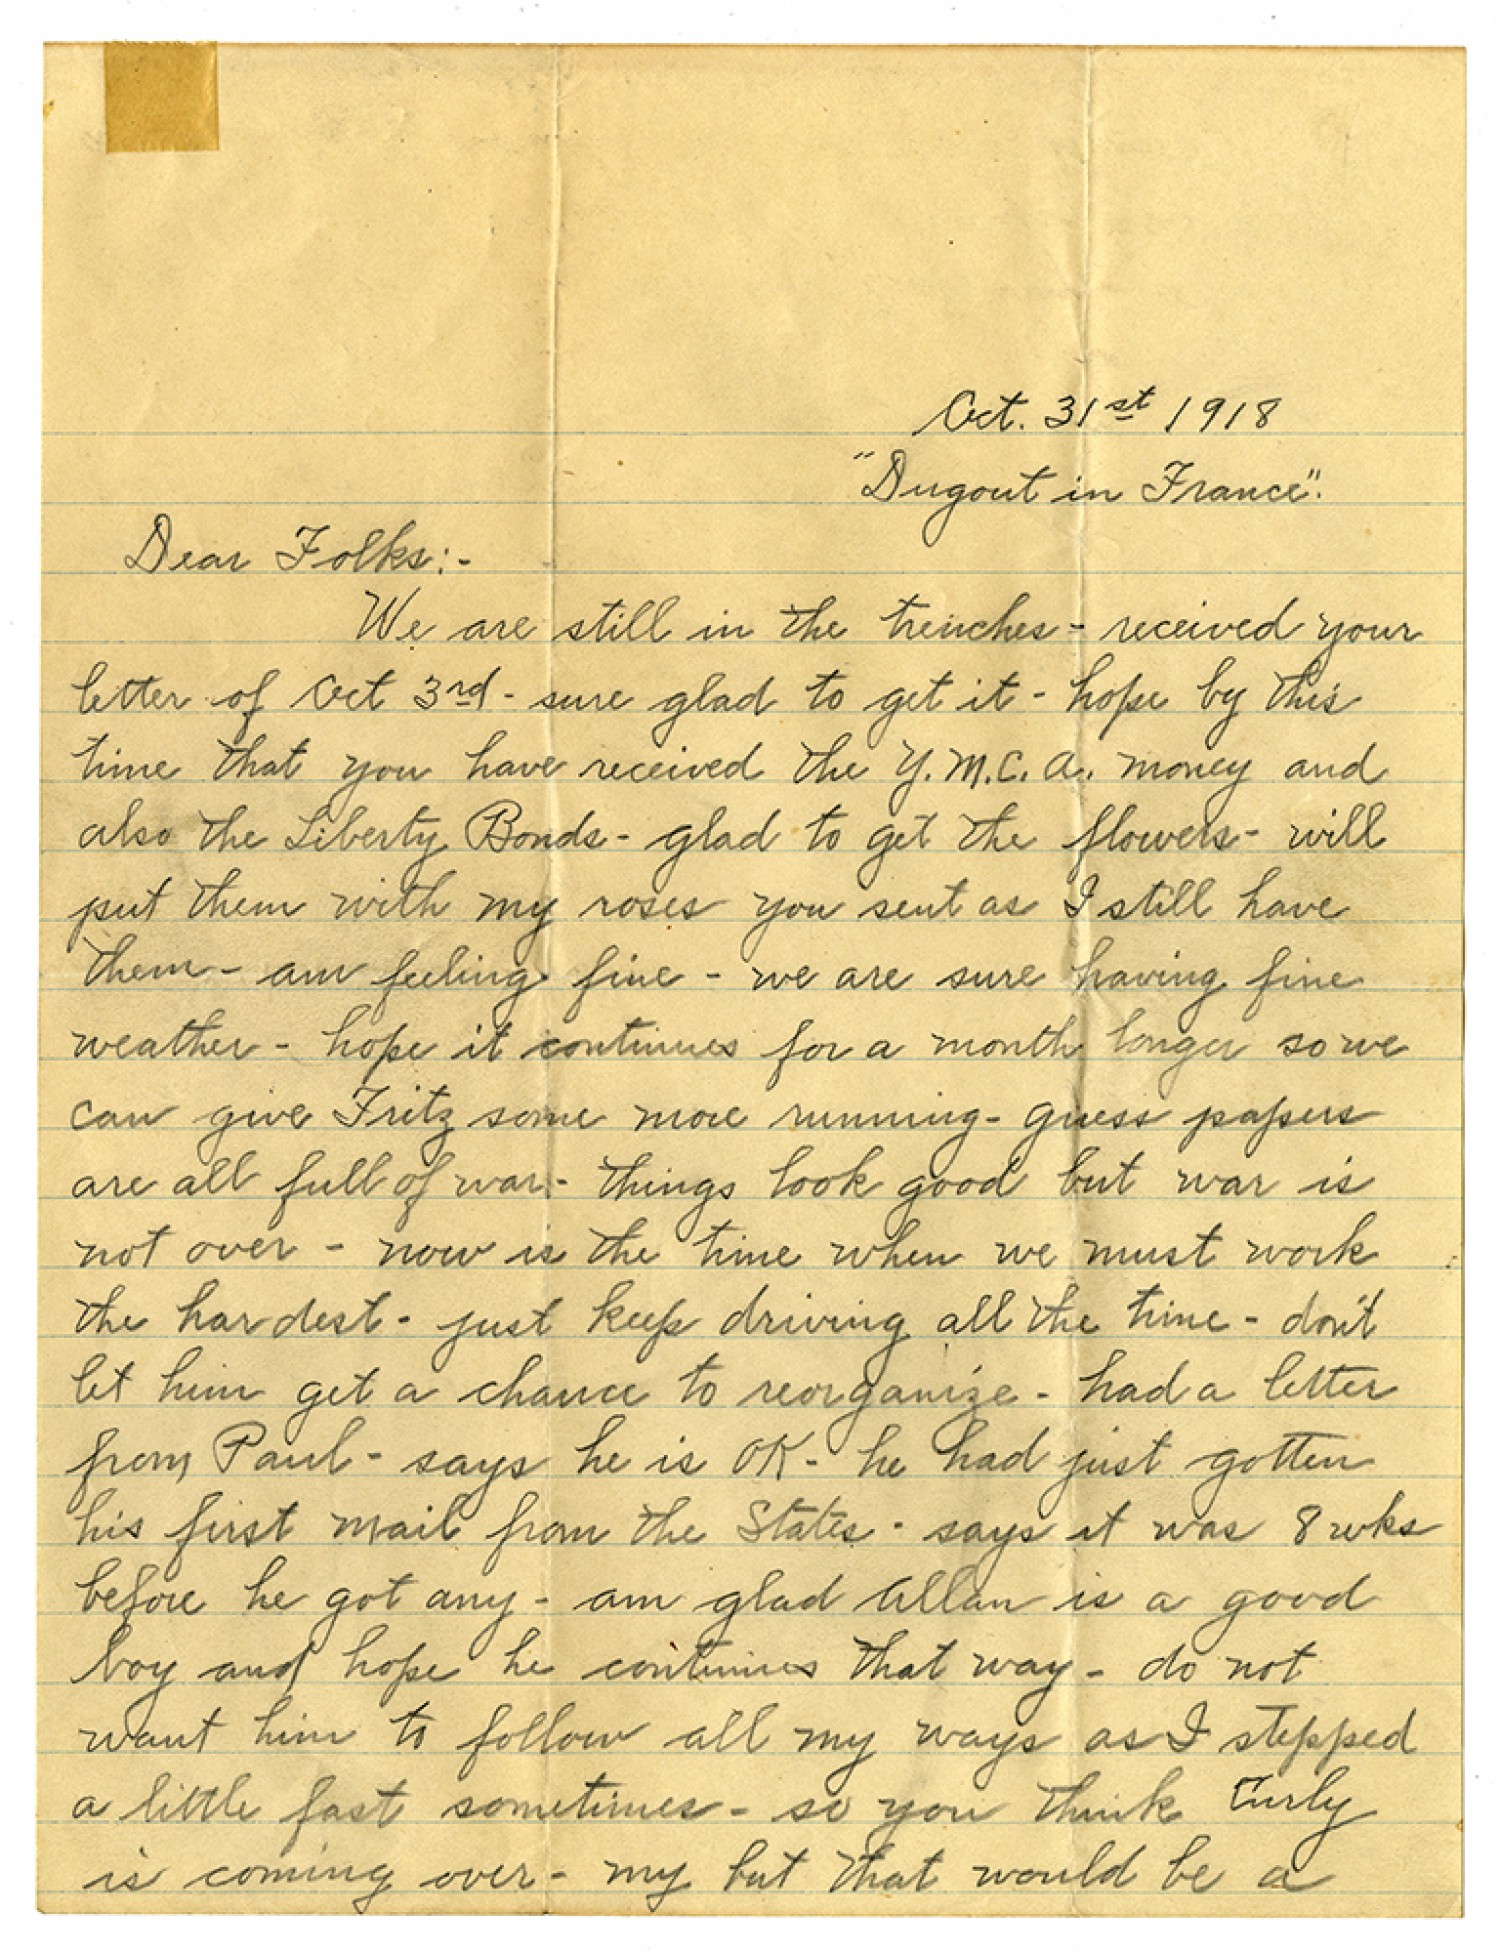 Oct. 31st 1918
"Dugout in France".
Dear Folks:-
We are still in the trenches - received your
letter of Oct 3rd - sure glad to get it - hope by this
time that you have received the Y.M.C.A. money and
also the Liberty Bonds - glad to get the flowers - will
put them with my roses you sent as I still have
them - am feeling fine - we are sure having fine
weather - hope it continues for a month longer so we
can give Fritz some more running - guess papers
are all full of war - things look good but war is
not over - now is the time when we must work
the hardest - just keep driving all the time - don't
let him get a chance to reorganize - had a letter
from Paul - says he is OK - he had just gotten
his first mail from the States - says it was 8 wks
before he got any - am glad Allan is a good
boy and hope he continues that way - do not
want him to follow all my ways as I stepped
a little fast sometimes - so you think
is coming over - my but that would be a